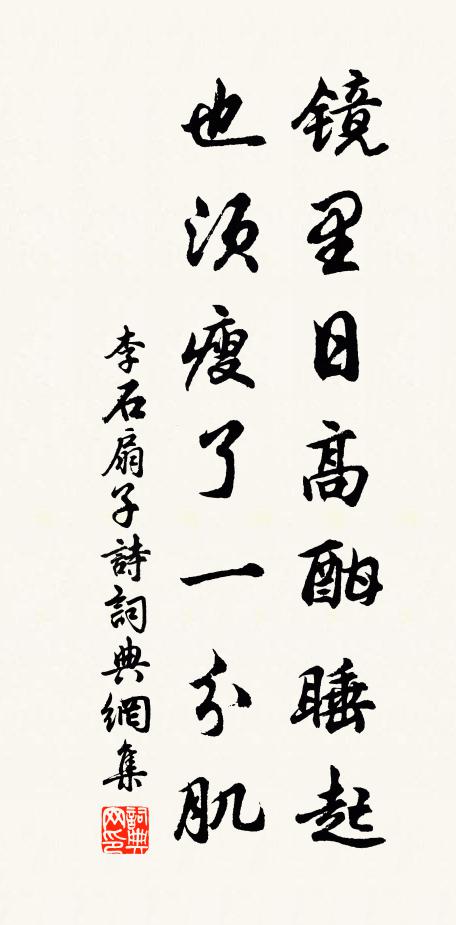 镜里日高酣睡起
也须瘦了一分肌
李石扇子詩詞典網集
詞典网印